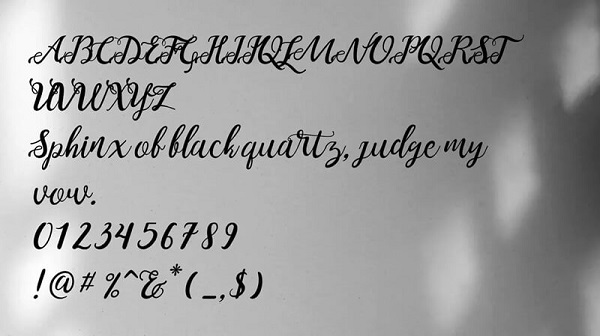 ABCDEFGHIJKLMNOPQRST
UVWXYZ
Sphinx of black quartz, judge my
vow.
0123456789
!@#%^&*(_,$)